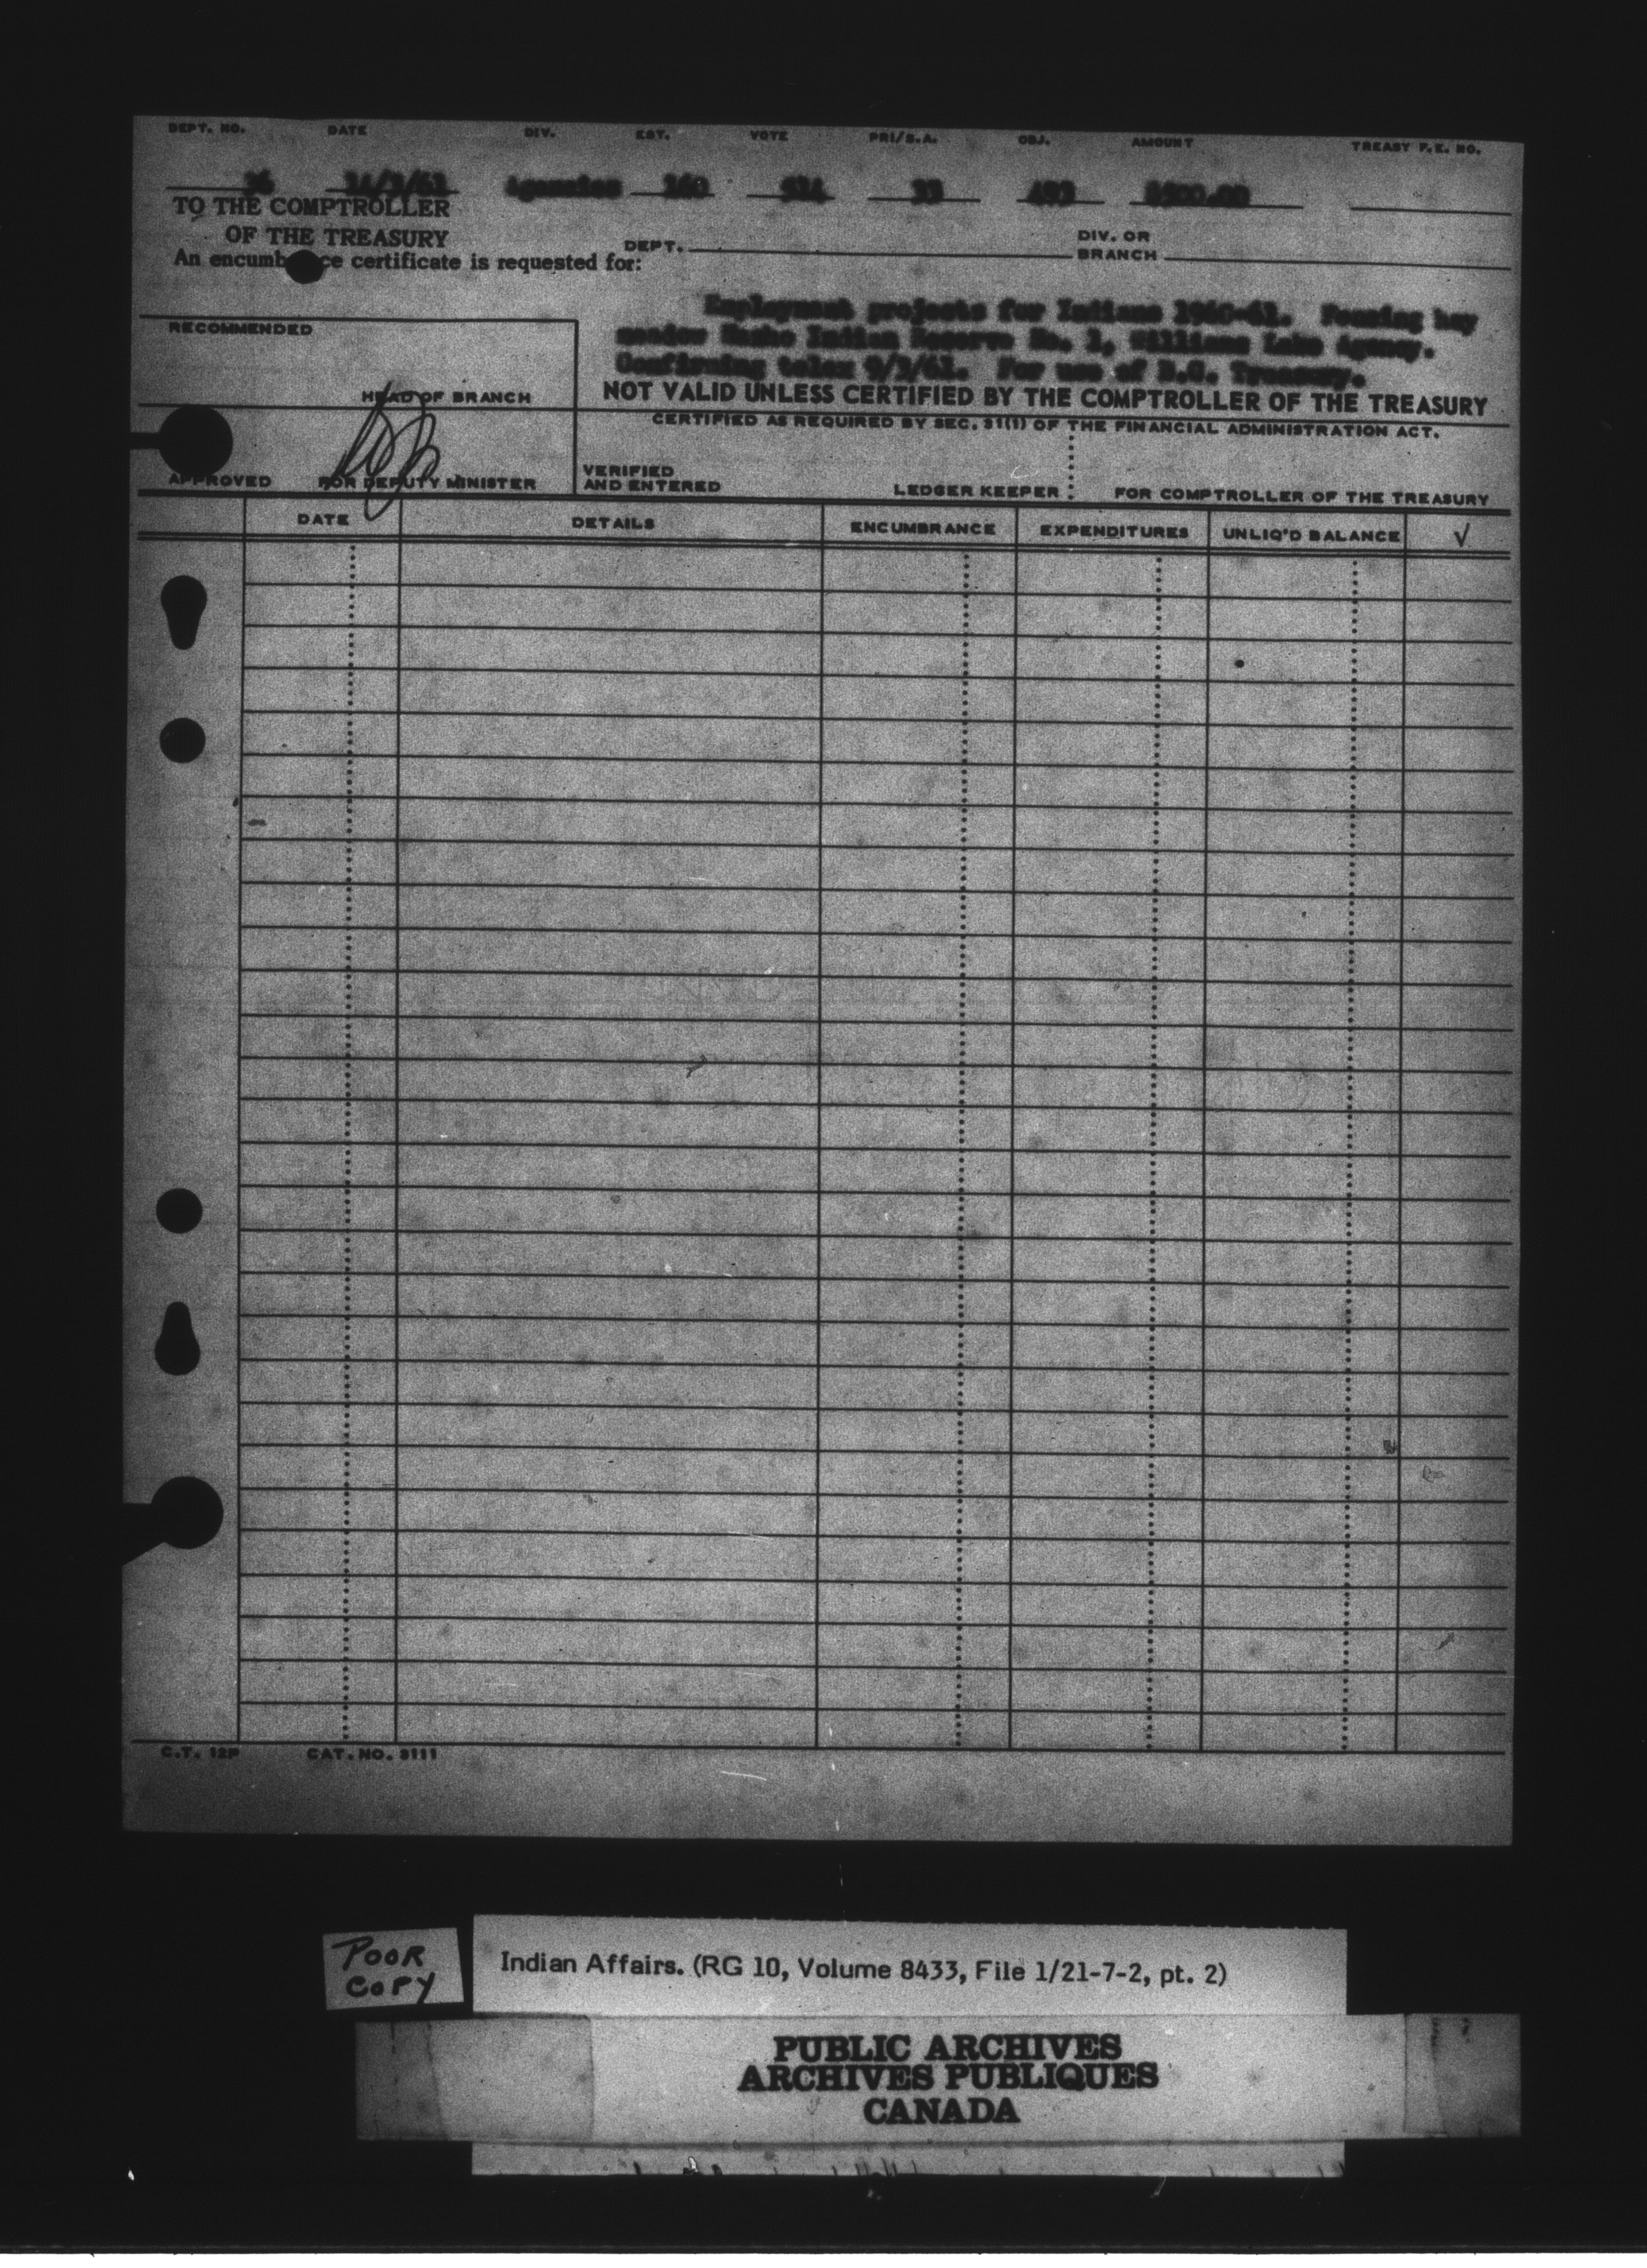 DEPT. NO. DATE DIV. EST. VOTE PRI/S.A. OBJ. AMOUNT TREASY F.E. NO.
14/3/61 Agencies 160 33 493 $500.00
TO THE COMPTROLLER
OF THE TREASURY
DEPT. DIV. OR BRANCH
An encumb ce certificate is requested for:
Employment projects for Indians 1960-61. Fencing hay
meadow Indian Reserve No. 2, Williams Lake Agency.
Confirming telex 9/3/61. For use of B.C. Treasury.
RECOMMENDED
HEAD OF BRANCH
NOT VALID UNLESS CERTIFIED BY THE COMPTROLLER OF THE TREASURY
CERTIFIED AS REQUIRED BY SEC. 31(1) OF THE FINANCIAL ADMINISTRATION ACT.
APPROVED FOR DEPUTY MINISTER
VERIFIED
AND ENTERED LEDGER KEEPER FOR COMPTROLLER OF THE TREASURY
DATE DETAILS ENCUMBRANCE EXPENDITURES UNLIQ'D BALANCE √
C.T. 12P CAT. NO. 3111
POOR
COPY
Indian Affairs. (RG 10, Volume 8433, File 1/21-7-2, pt. 2)
PUBLIC ARCHIVES
ARCHIVES PUBLIQUES
CANADA